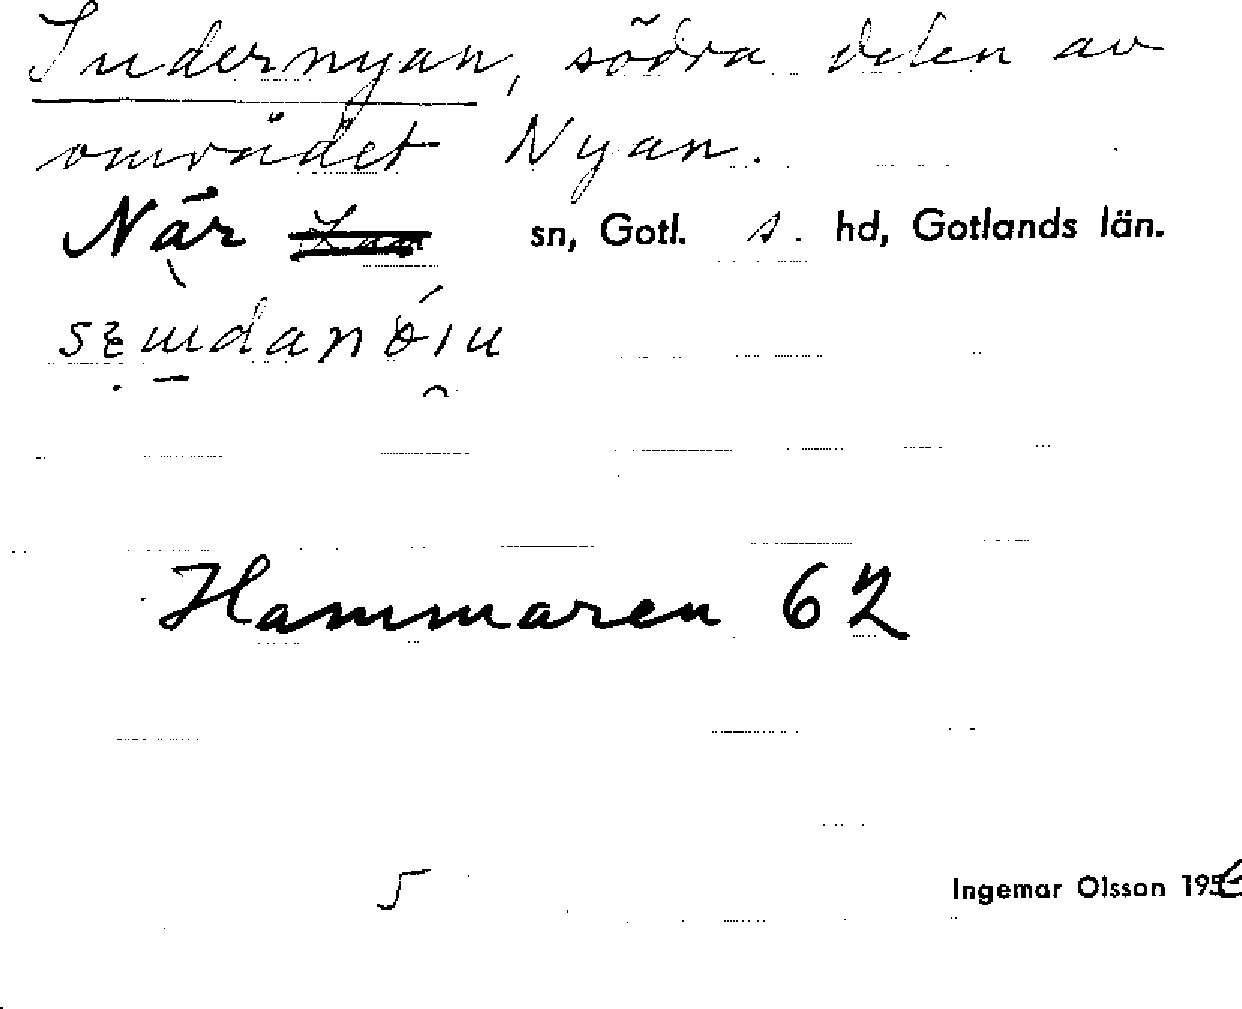 Sudernyan, södra delen av
området Nyan.
När sn, Gotl. s. hd, Gotlands län.
Hammaren 62
5 Ingemar Olsson 1956